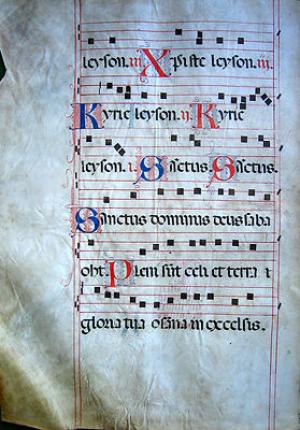 leyson. iii Xpiste leyson. iii.
Kyrie leyson. ii. Kyrie
leyson. i. Sāctus. Sāctus.
Sanctus dominus deus saba
oht. Pleni sūt celi et terra t
gloria tua osāna in excelsis.